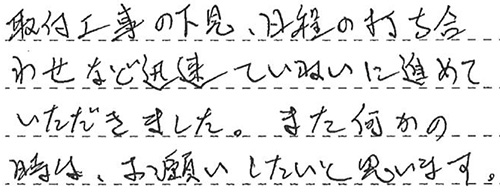 取付工事の下見、日程の打ち合
わせなど迅速ていねいに進めて
いただきました。また何かの
時は、お願いしたいと思います。